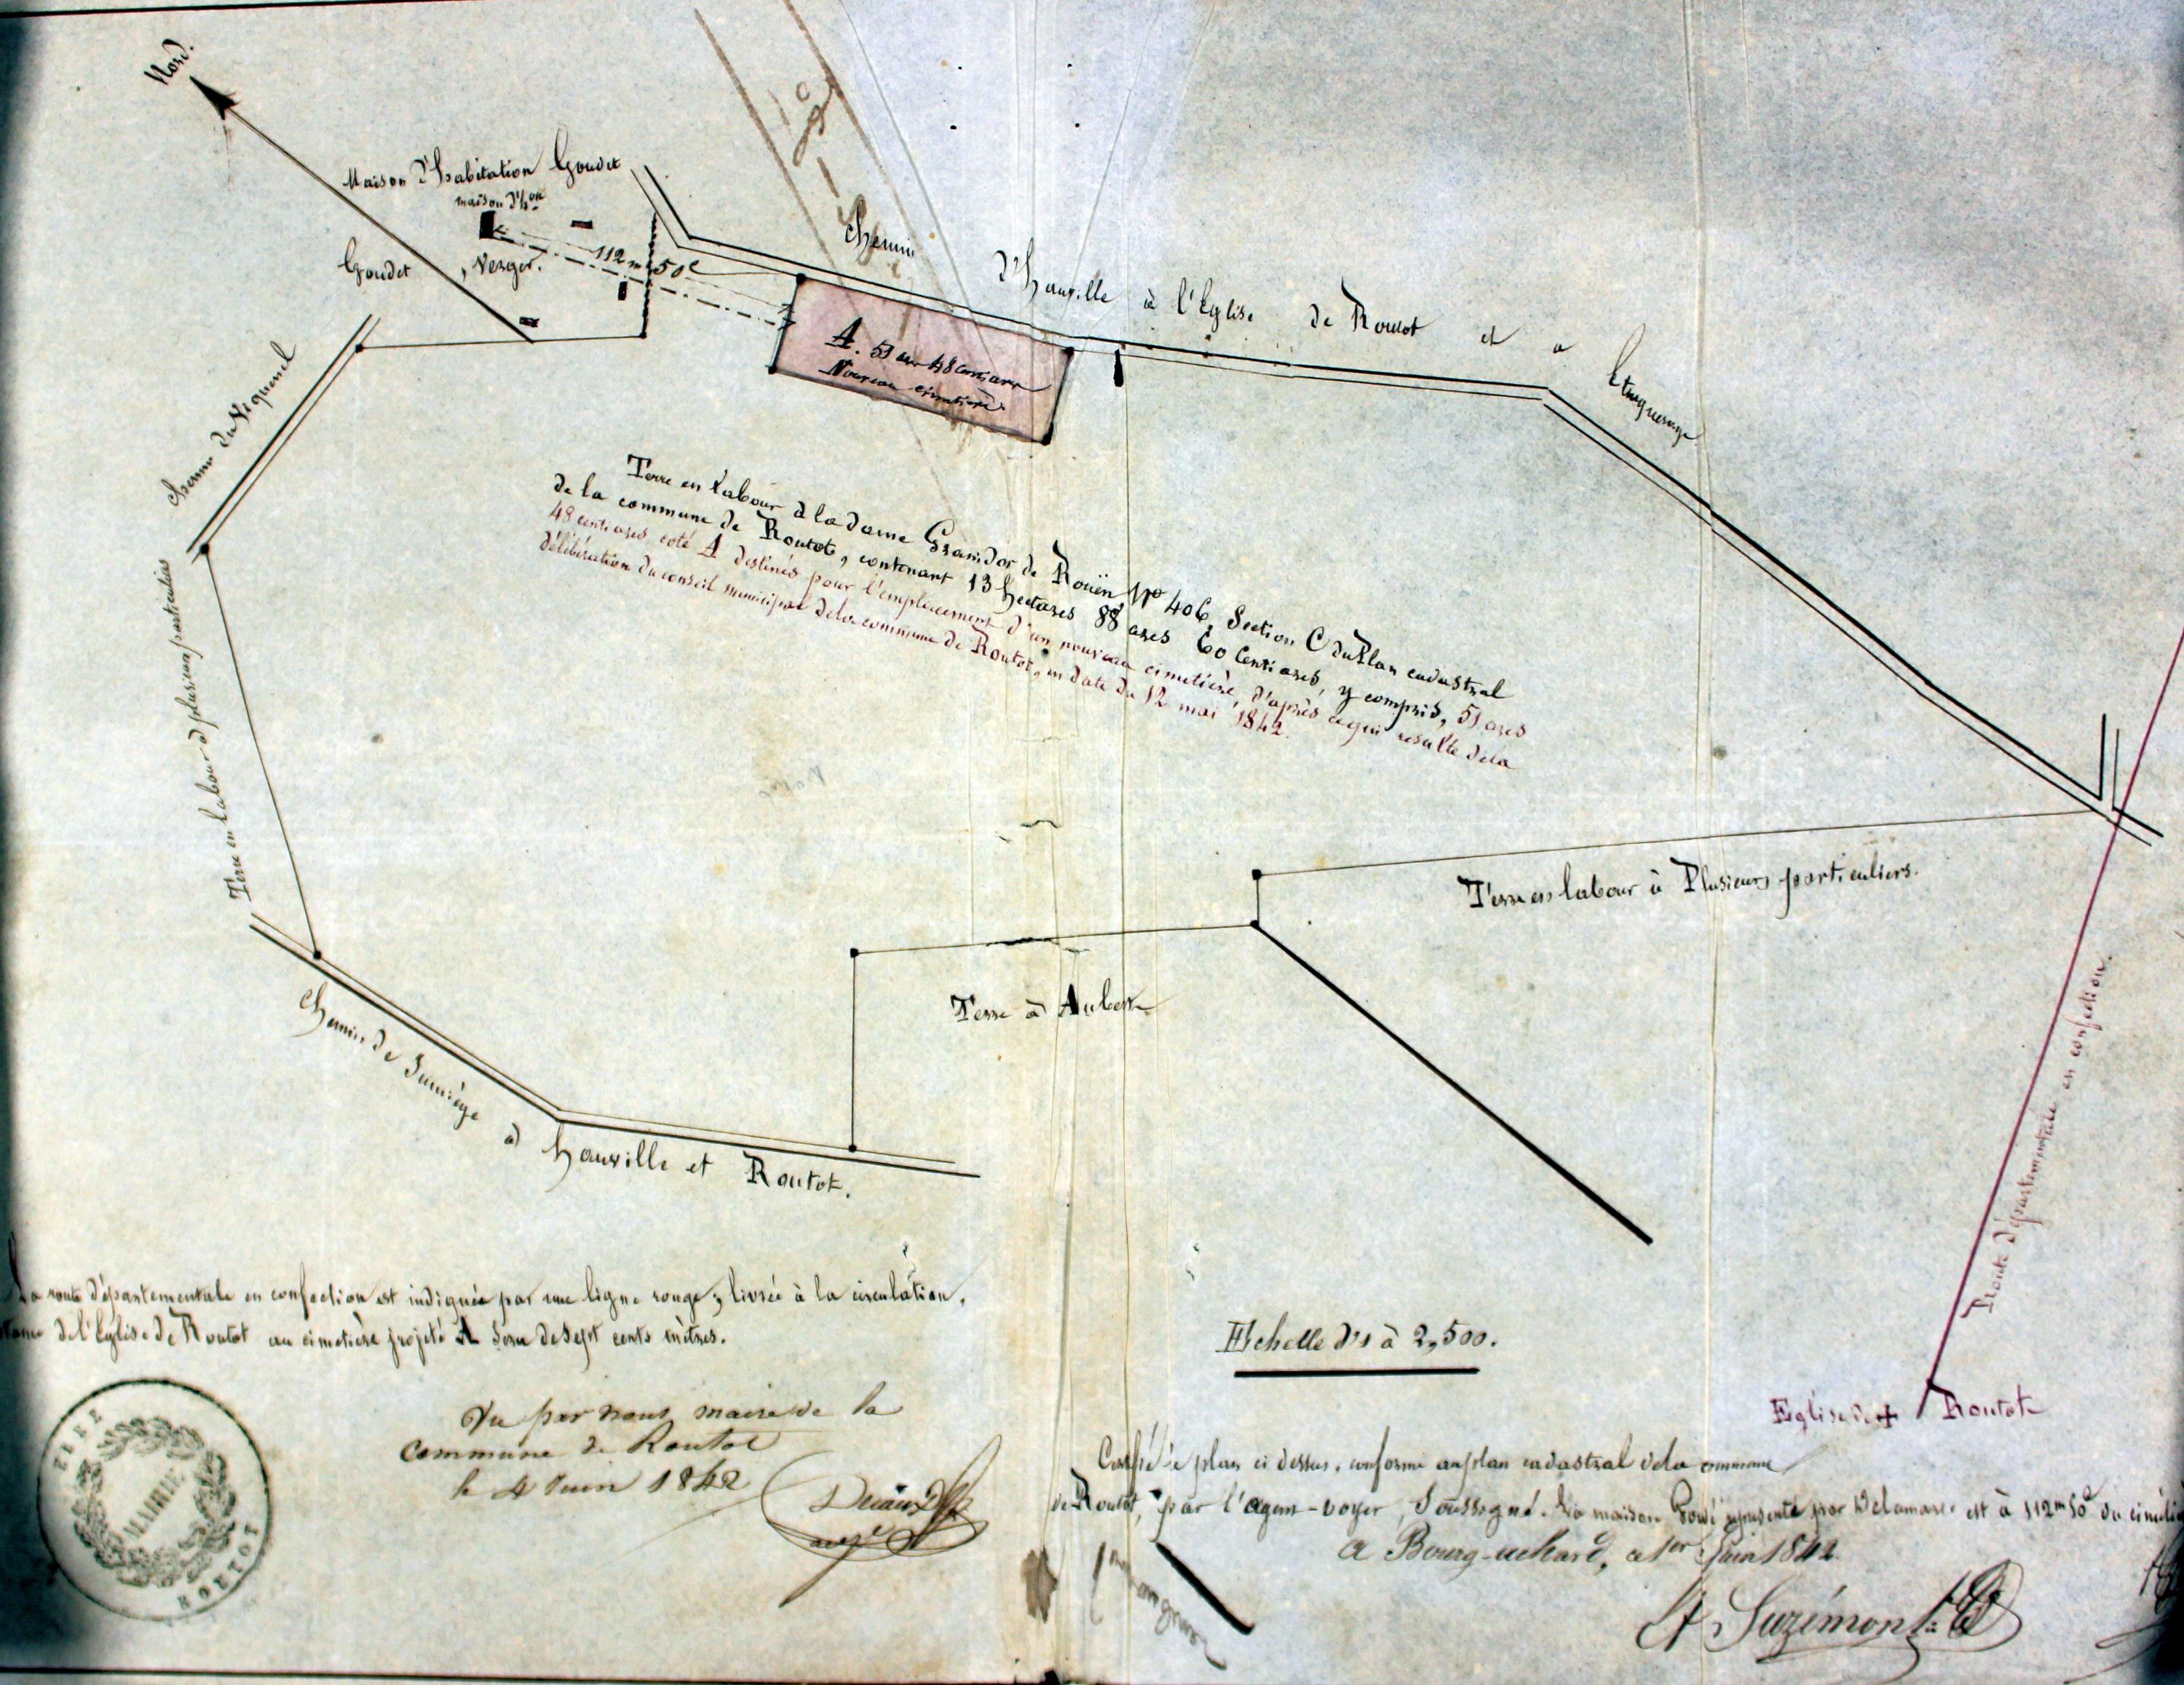 Nord.
Maison d'habitation Goudet
maison d'h.on
Goudet, Verger.
112 m 50 c
Chemin d'hauville à l'Eglise de Routot et a Eturqueraye
A. 51 ares 48 centiares
Nouveau cimetière.
Chemin du Viquenel
Terre en labour à plusieurs particuliers
Terre en labour à la dame Graindor de Rouën No 406, Section C du Plan cadastral
de la commune de Routot, contenant 13 hectares 88 ares 60 Centiares, y compris, 51 ares
48 centiares coté A destinés pour l'emplacement d'un nouveau cimetière, d'après ce qui résulte de la
délibération du conseil municipal de la commune de Routot, en date du 12 mai 1842.
Terre en labour à Plusieurs particuliers.
Terre à Aubert
Chemin de Jumiège à hauville et Routot.
Route départementale en confection.
La route départementale en confection est indiquée par une ligne rouge, livrée à la circulation,
de l'Eglise de Routot au cimetière projeté A sera de sept cents mètres.
Echelle d'1 à 2,500.
Eglise de Routot
MAIRIE
ROUTOT
Vu par nous maire de la
commune de Routot
le 4 Juin 1842
le plan ci dessus, conforme au plan cadastral de la commune
de Routot, par l'agent-voyer, Soussigné. La maison représenté par Delamare est à 112 m 50 c du
a Bourg-achard, le 1er Juin 1842
Suzémont